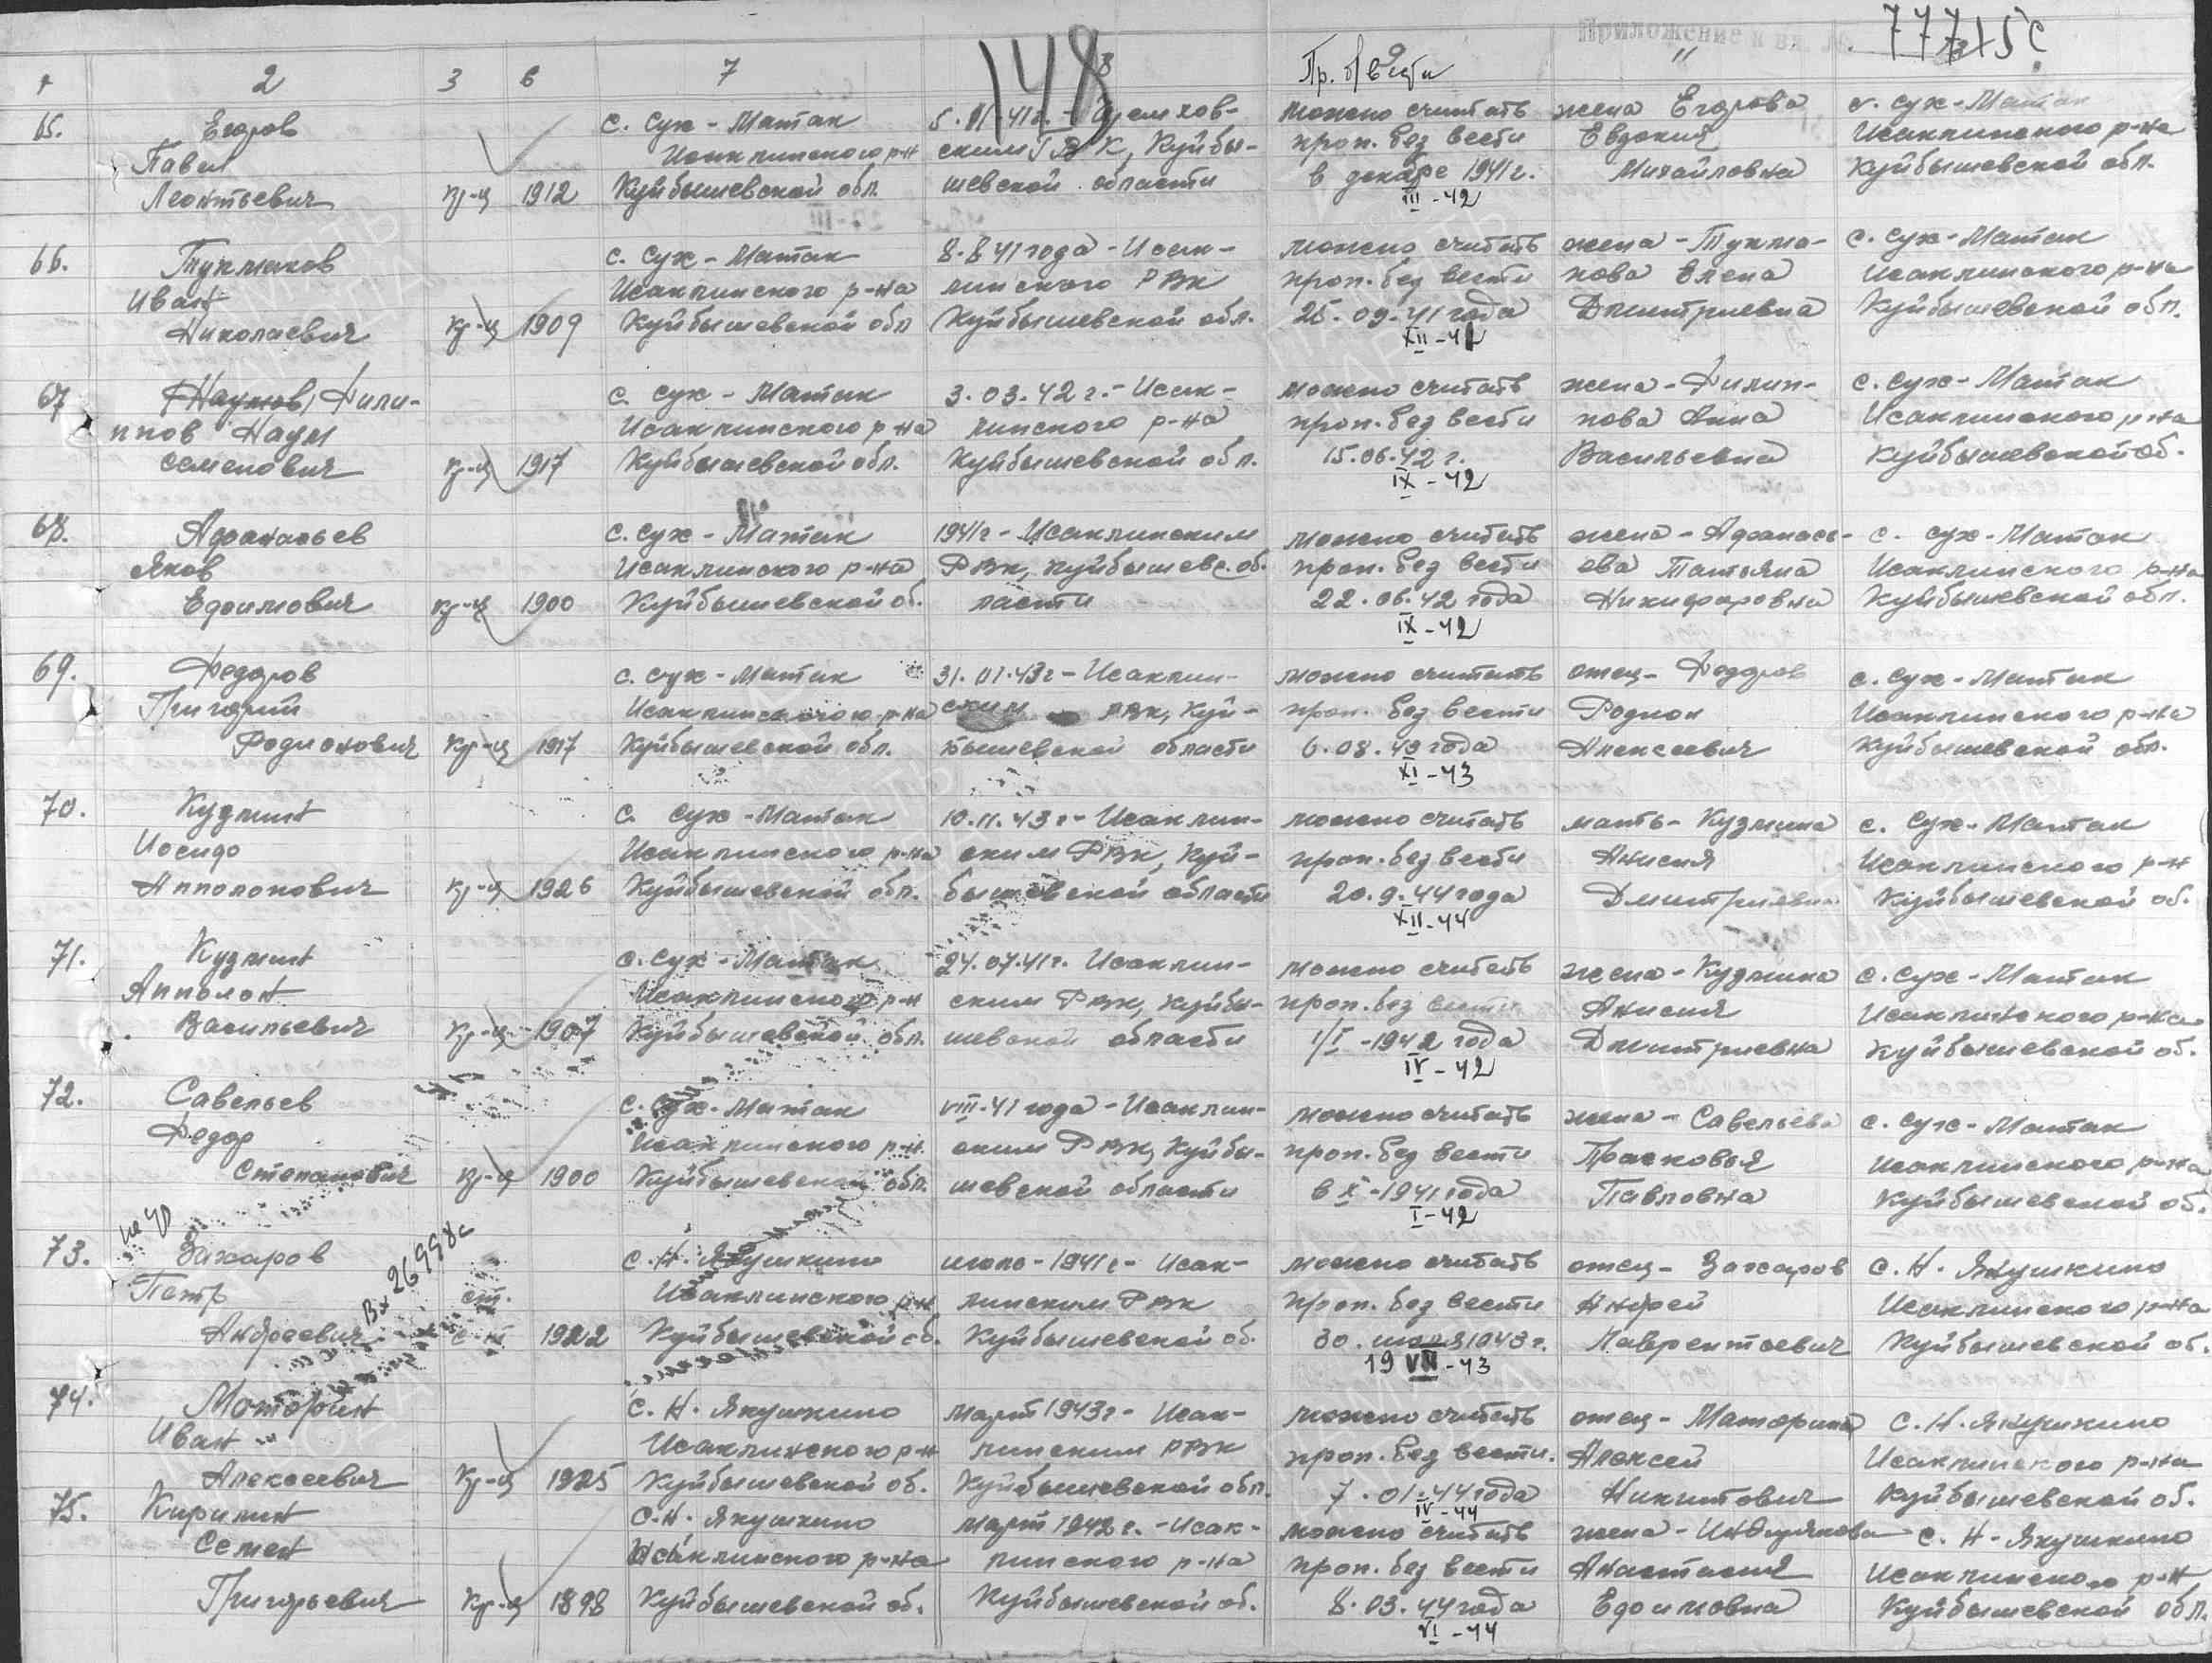 Приложение к вх. №
77715с
148
1 2 3 6 7 8 9 11
Пр. б/вести
65. Егоров с. Сух-Матак 5.11.41г.- можно считать жена Егорова с. Сух-Матак
Павел Исаклинского р-н ским ГВК, Куйбы- проп. без вести Евдокия Исаклинского р-на
Леонтьевич кр-ц 1912 Куйбышевской обл. шевской области в декабре 1941г. Михайловна Куйбышевской обл.
III-42
66. Тукмаков с. Сух-Матак 8.8 41 года - Исак- можно считать жена - Тукма- с. Сух-Матак
Иван Исаклинского р-на линского РВК проп. без вести кова Елена Исаклинского р-на
Николаевич кр-ц 1909 Куйбышевской обл Куйбышевской обл. 25.09.41 года Дмитриевна Куйбышевской обл.
XII-41
67 Наумов, Фили- с. Сух-Матак 3.03.42 г.- Исак- можно считать жена - Филип- с. Сух-Матак
ппов Наум Исаклинского р-на линского р-на проп. без вести пова Анна Исаклинского р-на
Семенович кр-ц 1917 Куйбышевской обл. Куйбышевской обл. 15.06.42 г. Васильевна Куйбышевской об.
IX-42
68. Афанасьев с. Сух-Матак 1941г - Исаклинским можно считать жена - Афанась- с. Сух-Матак
Яков Исаклинского р-на РВК, Куйбышевс. об- проп. без вести ева Татьяна Исаклинского р-на
Ефимович кр-ц 1900 Куйбышевской об. ласти 22.06.42 года Никифоровна Куйбышевской обл.
IX-42
69. Федоров с. Сух-Матак 31.01.43г - Исаклин- можно считать отец - Федоров с. Сух-Матак
Григорий Исаклинского р-на ским РВК, Куй- проп. без вести Родион Исаклинского р-на
Родионович кр-ц 1917 Куйбышевской обл. бышевской области 6.08.43 года Алексеевич Куйбышевской обл.
XI-43
70. Кузмин с. Сух-Матак 10.11.43 г- Исаклин- можно считать мать - Кузмина с. Сух-Матак
Иосиф Исаклинского р-на ским РВК, Куй- проп. без вести Анисия Исаклинского р-н
Апполонович кр-ц 1926 Куйбышевской обл. бышевской области 20.9.44 года Дмитриевна Куйбышевской об.
XII-44
71. Кузмин с. Сух-Матак 24.07.41г. Исаклин- можно считать жена - Кузмина с. Сух-Матак
Апполон Исаклинского р-н ским РВК, Куйбы- проп. без вести Анисия Исаклинского р-на
Васильевич кр-ц 1907 Куйбышевской обл. шевской области 1/I-1942 года Дмитриевна Куйбышевской об.
IV-42
72. Савельев с. Сух-Матак VIII-41 года - Исаклин- можно считать жена - Савельева с. Сух-Матак
Федор Исаклинского р-н ским РВК, Куйбы- проп. без вести Прасковья Исаклинского р-на
Степанович кр-ц 1900 Куйбышевской обл. шевской области в X-1941 года Павловна Куйбышевской об.
I-42
Вх 26998с
73. Захаров с. Н. Якушкино июль-1941г- Исак- можно считать отец - Захаров с. Н. Якушкино
Петр ст. Исаклинского р-н линским РВК проп. без вести Андрей Исаклинского р-на
Андреевич с-т 1922 Куйбышевской об. Куйбышевской об. 30. 1943г. Лаврентьевич Куйбышевской об.
19 VII-43
74. Маторин с. Н. Якушкино март 1943г - Исак- можно считать отец - Маторина с. Н. Якушкино
Иван Исаклинского р-н линским РВК проп. без вести. Алексей Исаклинского р-на
Алексеевич кр-ц 1925 Куйбышевской об. Куйбышевской обл. 7.01.44 года Никитович Куйбышевской об.
IV-44
75. Кирилин с. Н. Якушкино март 1942г. - Исак- можно считать жена - с. Н-Якушкино
Семен Исаклинского р-на линского р-на проп. без вести Анастасия Исаклинского р-н
Григорьевич кр-ц 1898 Куйбышевской об. Куйбышевской об. 8.03.44 года Ефимовна Куйбышевской обл.
VI-44